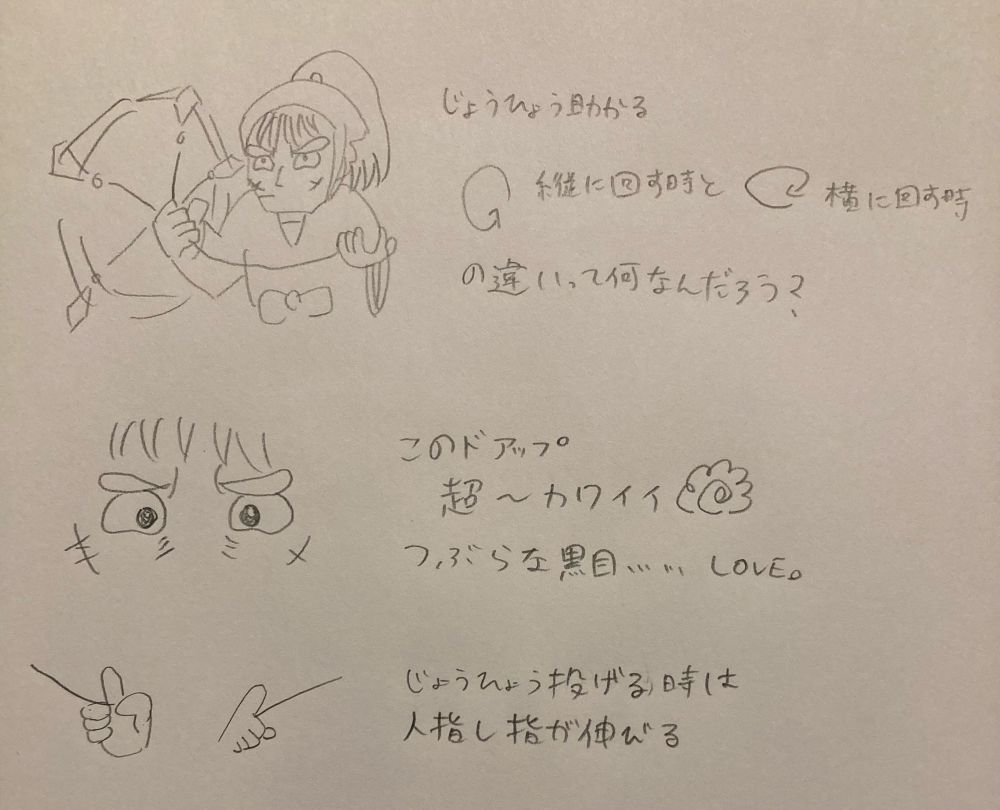 じょうひょう助かる
縦に回す時と 横に回す時
の違いって何なんだろう?
このドアップ
超〜カワイイ
つぶらな黒目…… LOVE。
じょうひょう投げる時は
人指し指が伸びる